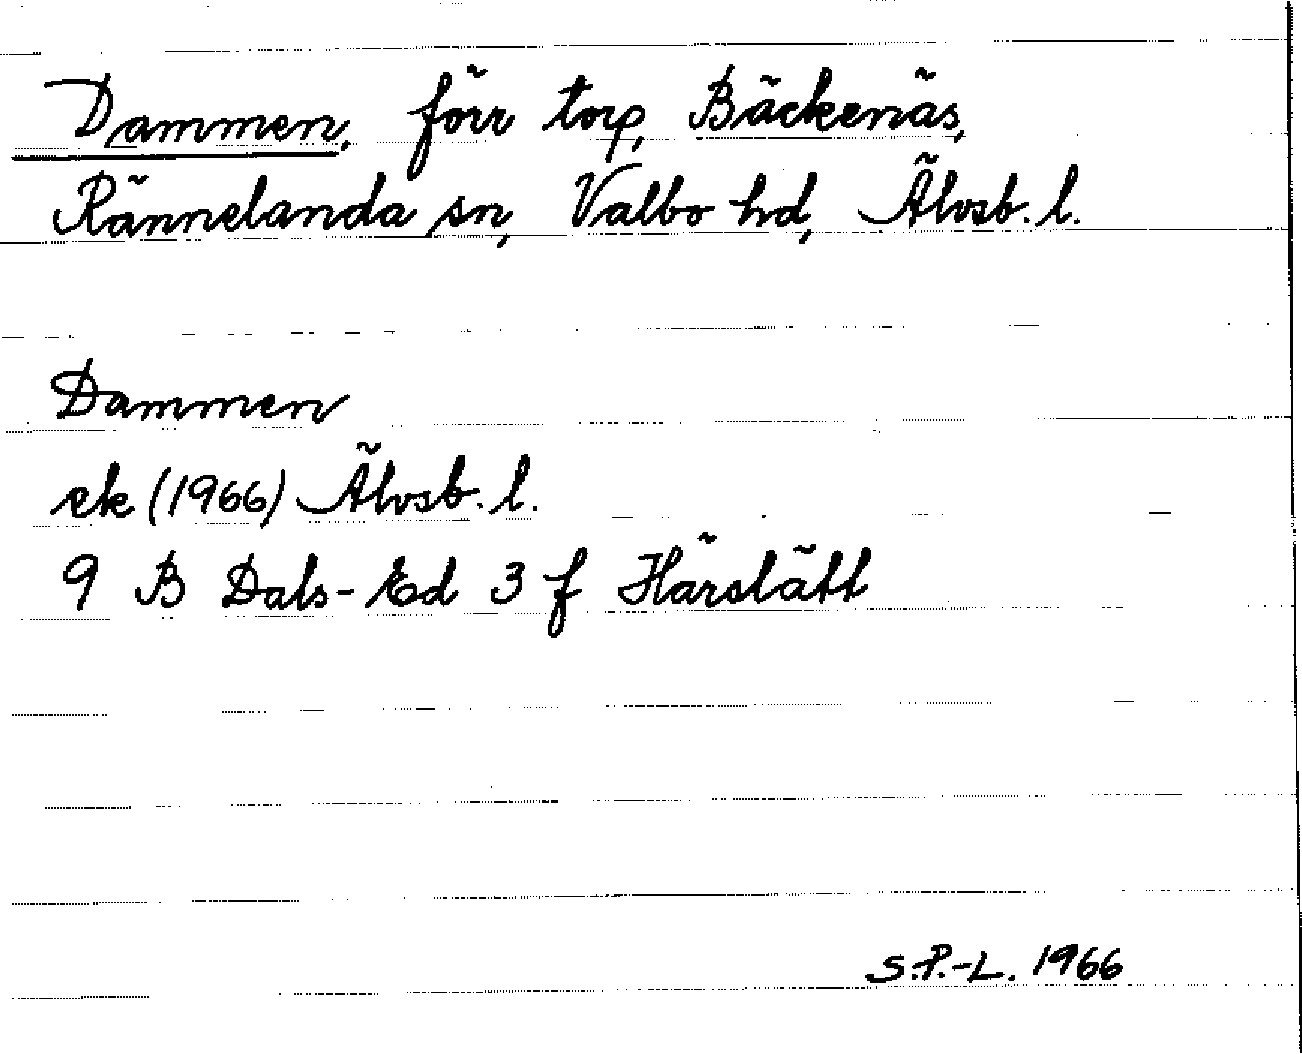 Dammen, förr torp, Bäckenäs,
Rännelanda sn, Valbo hd, Älvsb. l.
Dammen
ek (1966) Älvsb. l.
9 B Dals-Ed 3 f Härslätt
S.P.-L. 1966